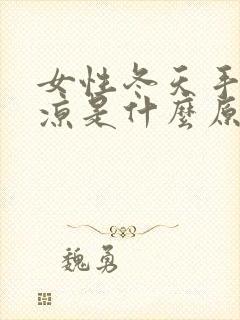 女性冬天手
凉是什麼原
魏勇